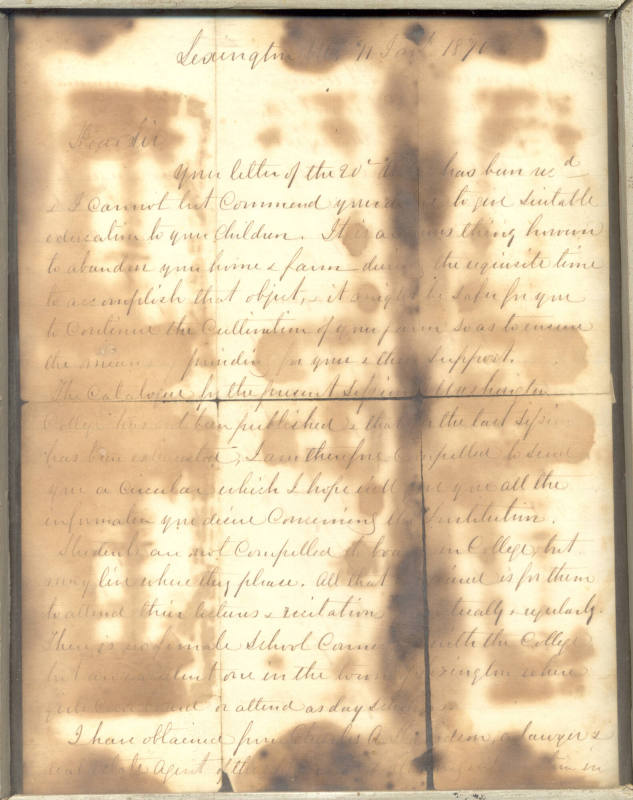 Lexington 11 Jany 1870
Dear Sir
Your letter of the 20th has been recd
& I cannot but Commend your to give suitable
education to your Children. It is a thing however
to abandon your home & farm during the requisite time
to accomplish that object, & it might be safer for you
to Continue the Cultivation of your farm so as to ensure
the means of providing for your & their Support.
The Catalogue for the present Session Washington
College has not been published & that for the last Session
has been exhausted; I am therefore Compelled to send
you a circular which I hope will give you all the
information you desire Concerning the Institution.
Students are not Compelled to board in College, but
may live where they please. All that is for them
to attend their lectures & recitation punctually & regularly.
There is no female School with the College
but an excellent one in the town Lexington where
girls Can board or attend as day scholars.
I have obtained from Charles A. Davidson, a lawyer &
real estate Agent of the in